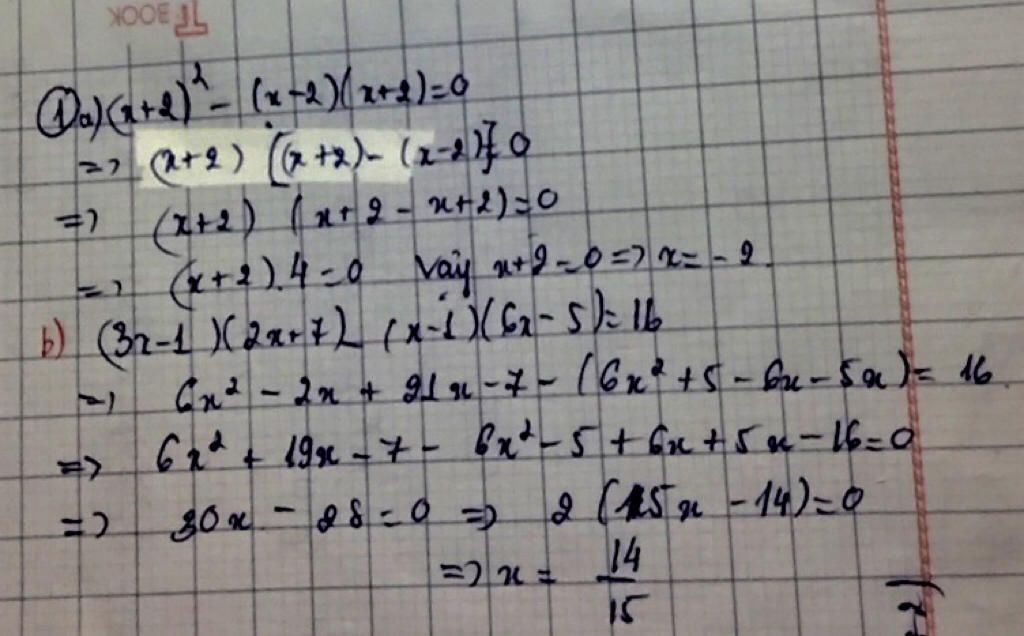 TF BOOK
① a) (x+2)² - (x-2)(x+2)=0
=> (x+2) [(x+2)-(x-2)]=0
=> (x+2) (x+2-x+2)=0
=> (x+2).4=0 Vậy x+2=0=>x=-2.
b) (3x-1)(2x+7)-(x-1)(6x-5)=16
=> 6x²-2x+21x-7-(6x²+5-6x-5x)=16.
=> 6x²+19x-7-6x²-5+6x+5x-16=0
=> 30x-28=0 => 2(15x-14)=0
=> x = 14/15